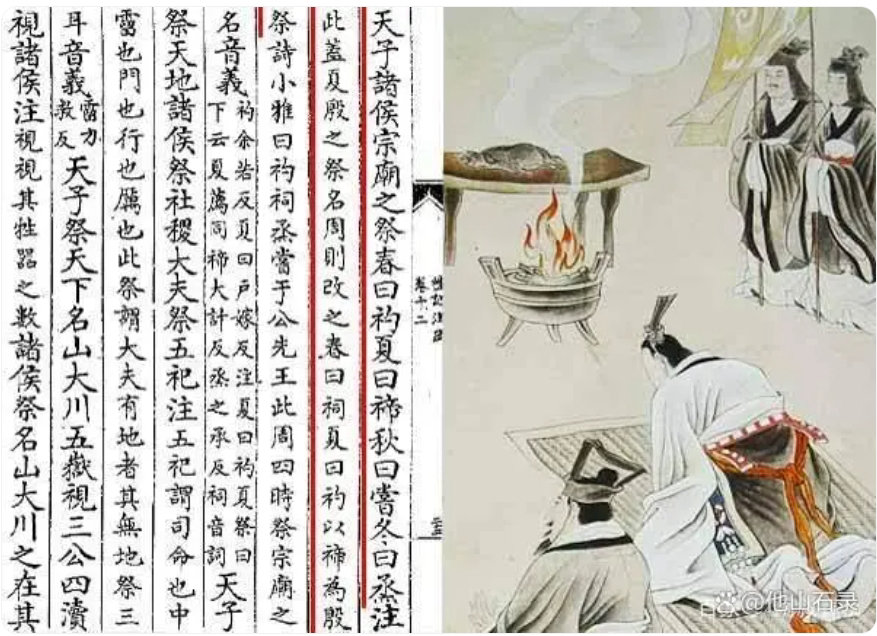 卷十二
天子諸侯宗廟之祭春曰礿夏曰禘秋曰嘗冬曰烝注
此蓋夏殷之祭名周則改之春曰祠夏曰礿以禘為殷
祭詩小雅曰礿祠烝嘗于公先王此周四時祭宗廟之
名音義
礿余若反夏曰戶嫁反注夏曰礿夏祭曰
下云夏薦同禘大計反烝之承反祠音詞
天子
祭天地諸侯祭社稷大夫祭五祀注五祀謂司命也中
霤也門也行也厲也此祭謂大夫有地者其無地祭三
耳音義
霤力
救反
天子祭天下名山大川五嶽視三公四瀆
視諸侯注視視其牲器之數諸侯祭名山大川之在其
@他山石录